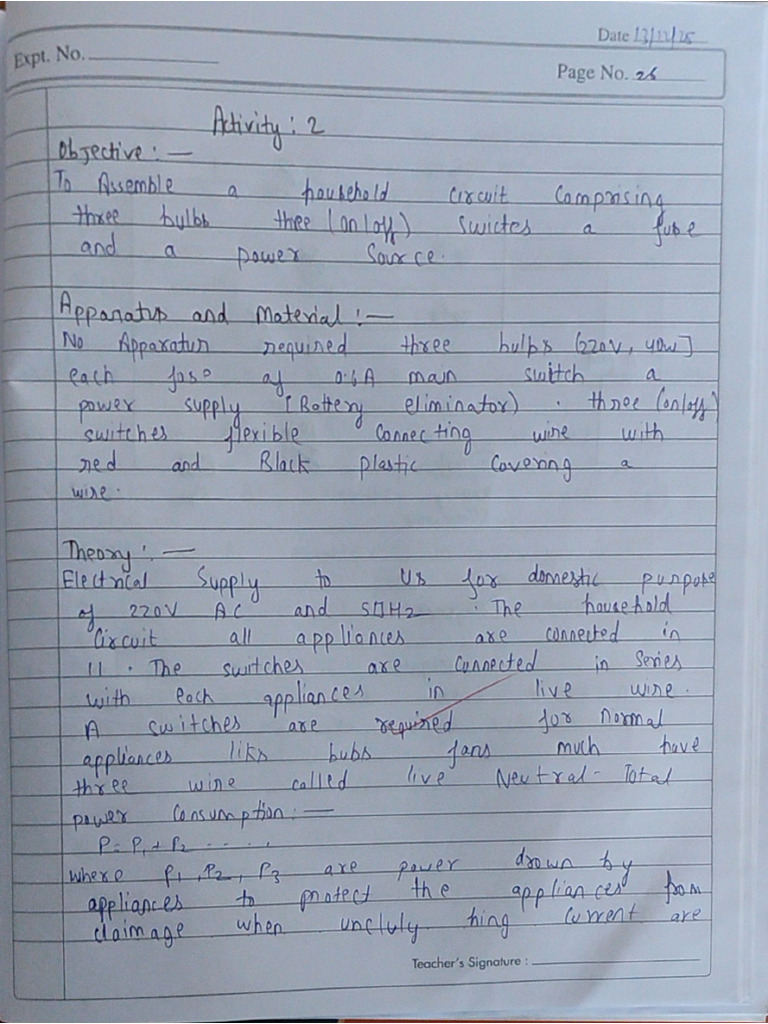 Date 13/12/25
Expt. No.
Page No. 26
Activity : 2
Objective : —
To Assemble a household circuit comprising
three bulbs thee (on/off) swictes a fuse
and a power source.
Apparatus and Material : —
No Apparatus required three bulbs (220V, 40W]
each fase of 0.6A main switch a
power supply [Battery eliminator) . three (on/off)
switches flexible connecting wire with
red and Black plastic covering a
wire.
Theory : —
Electrical Supply to us for domestic purpose
of 220V AC and 50Hz . The household
circuit all appliances are connected in
11 . The switches are connected in series
with each appliances in live wire.
A switches are required for normal
appliances liks bubs fans much have
three wire called live Neutral - Total
power consumption : —
P = P1 + P2 - - - - - .
where P1, P2, P3 are power drown by
appliances to protect the appliances from
claimage when uncluly hing current are
Teacher's Signature :